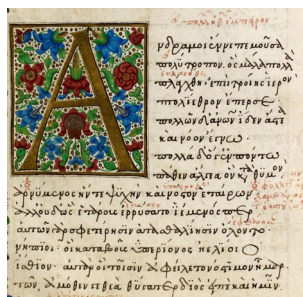 Ἄνδρα μοι ἔννεπε μοῦσα
πολύτροπον, ὃς μάλα πολλὰ
πλάγχθη· ἐπεὶ τροίης ἱερὸν
πτολίεθρον ἔπερσε·
πολλῶν δ' ἀνων ἴδεν ἄστε
α καὶ νόον ἔγνω·
πολλὰ δ' ὅγ' ἐν πόντω
πάθεν ἄλγεα ὃν κατὰ θυμὸν
ἀρνύμενος ἥν τε ψυχὴν καὶ νόστον ἑταίρων
ἀλλ' οὐδ' ὣς ἑτάρους ἐρρύσατο ἱέμενός περ
αὐτῶν γὰρ σφετέρησιν ἀτασθαλίησιν ὄλοντο
νήπιοι· οἳ κατὰ βοῦς ὑπερίονος ἠελίοιο
ἤσθιον· αὐτὰρ ὁ τοῖσιν ἀφείλετο νόστιμον ἦμαρ
τῶν ἁμόθεν γε θεὰ θύγατερ διὸς εἰπὲ καὶ ἡμῖν